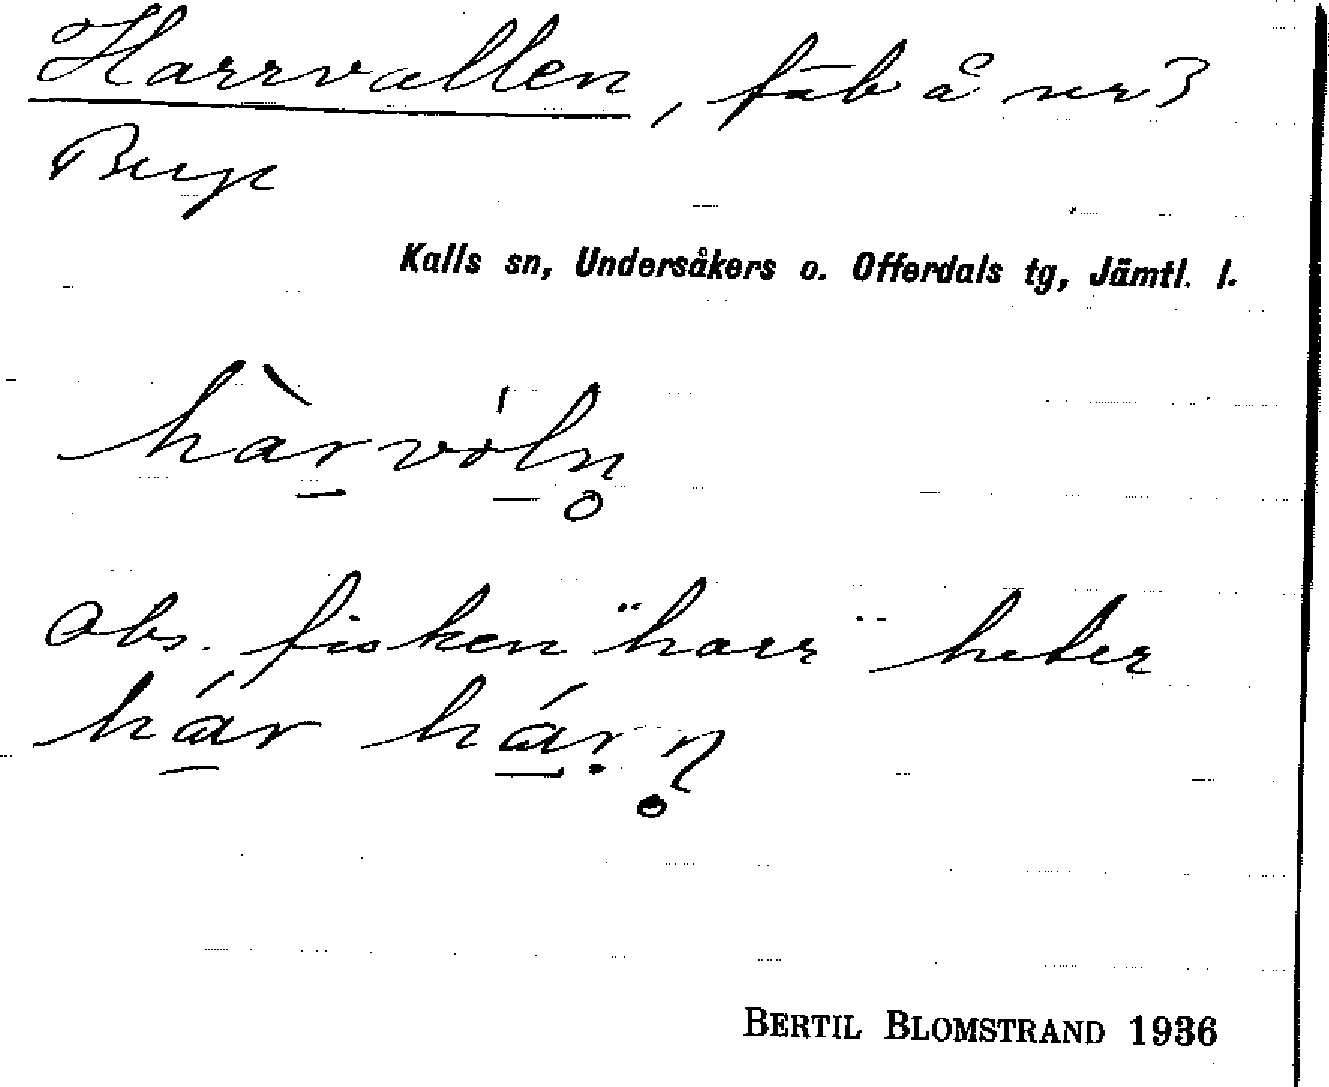 Harrvallen, fäb å nr 3
Berge
Kalls sn, Undersåkers o. Offerdals tg, Jämtl. l.
hàrvó̱ln̥
Obs. fisken "harr" heter
hár hárn̥
BERTIL BLOMSTRAND 1936